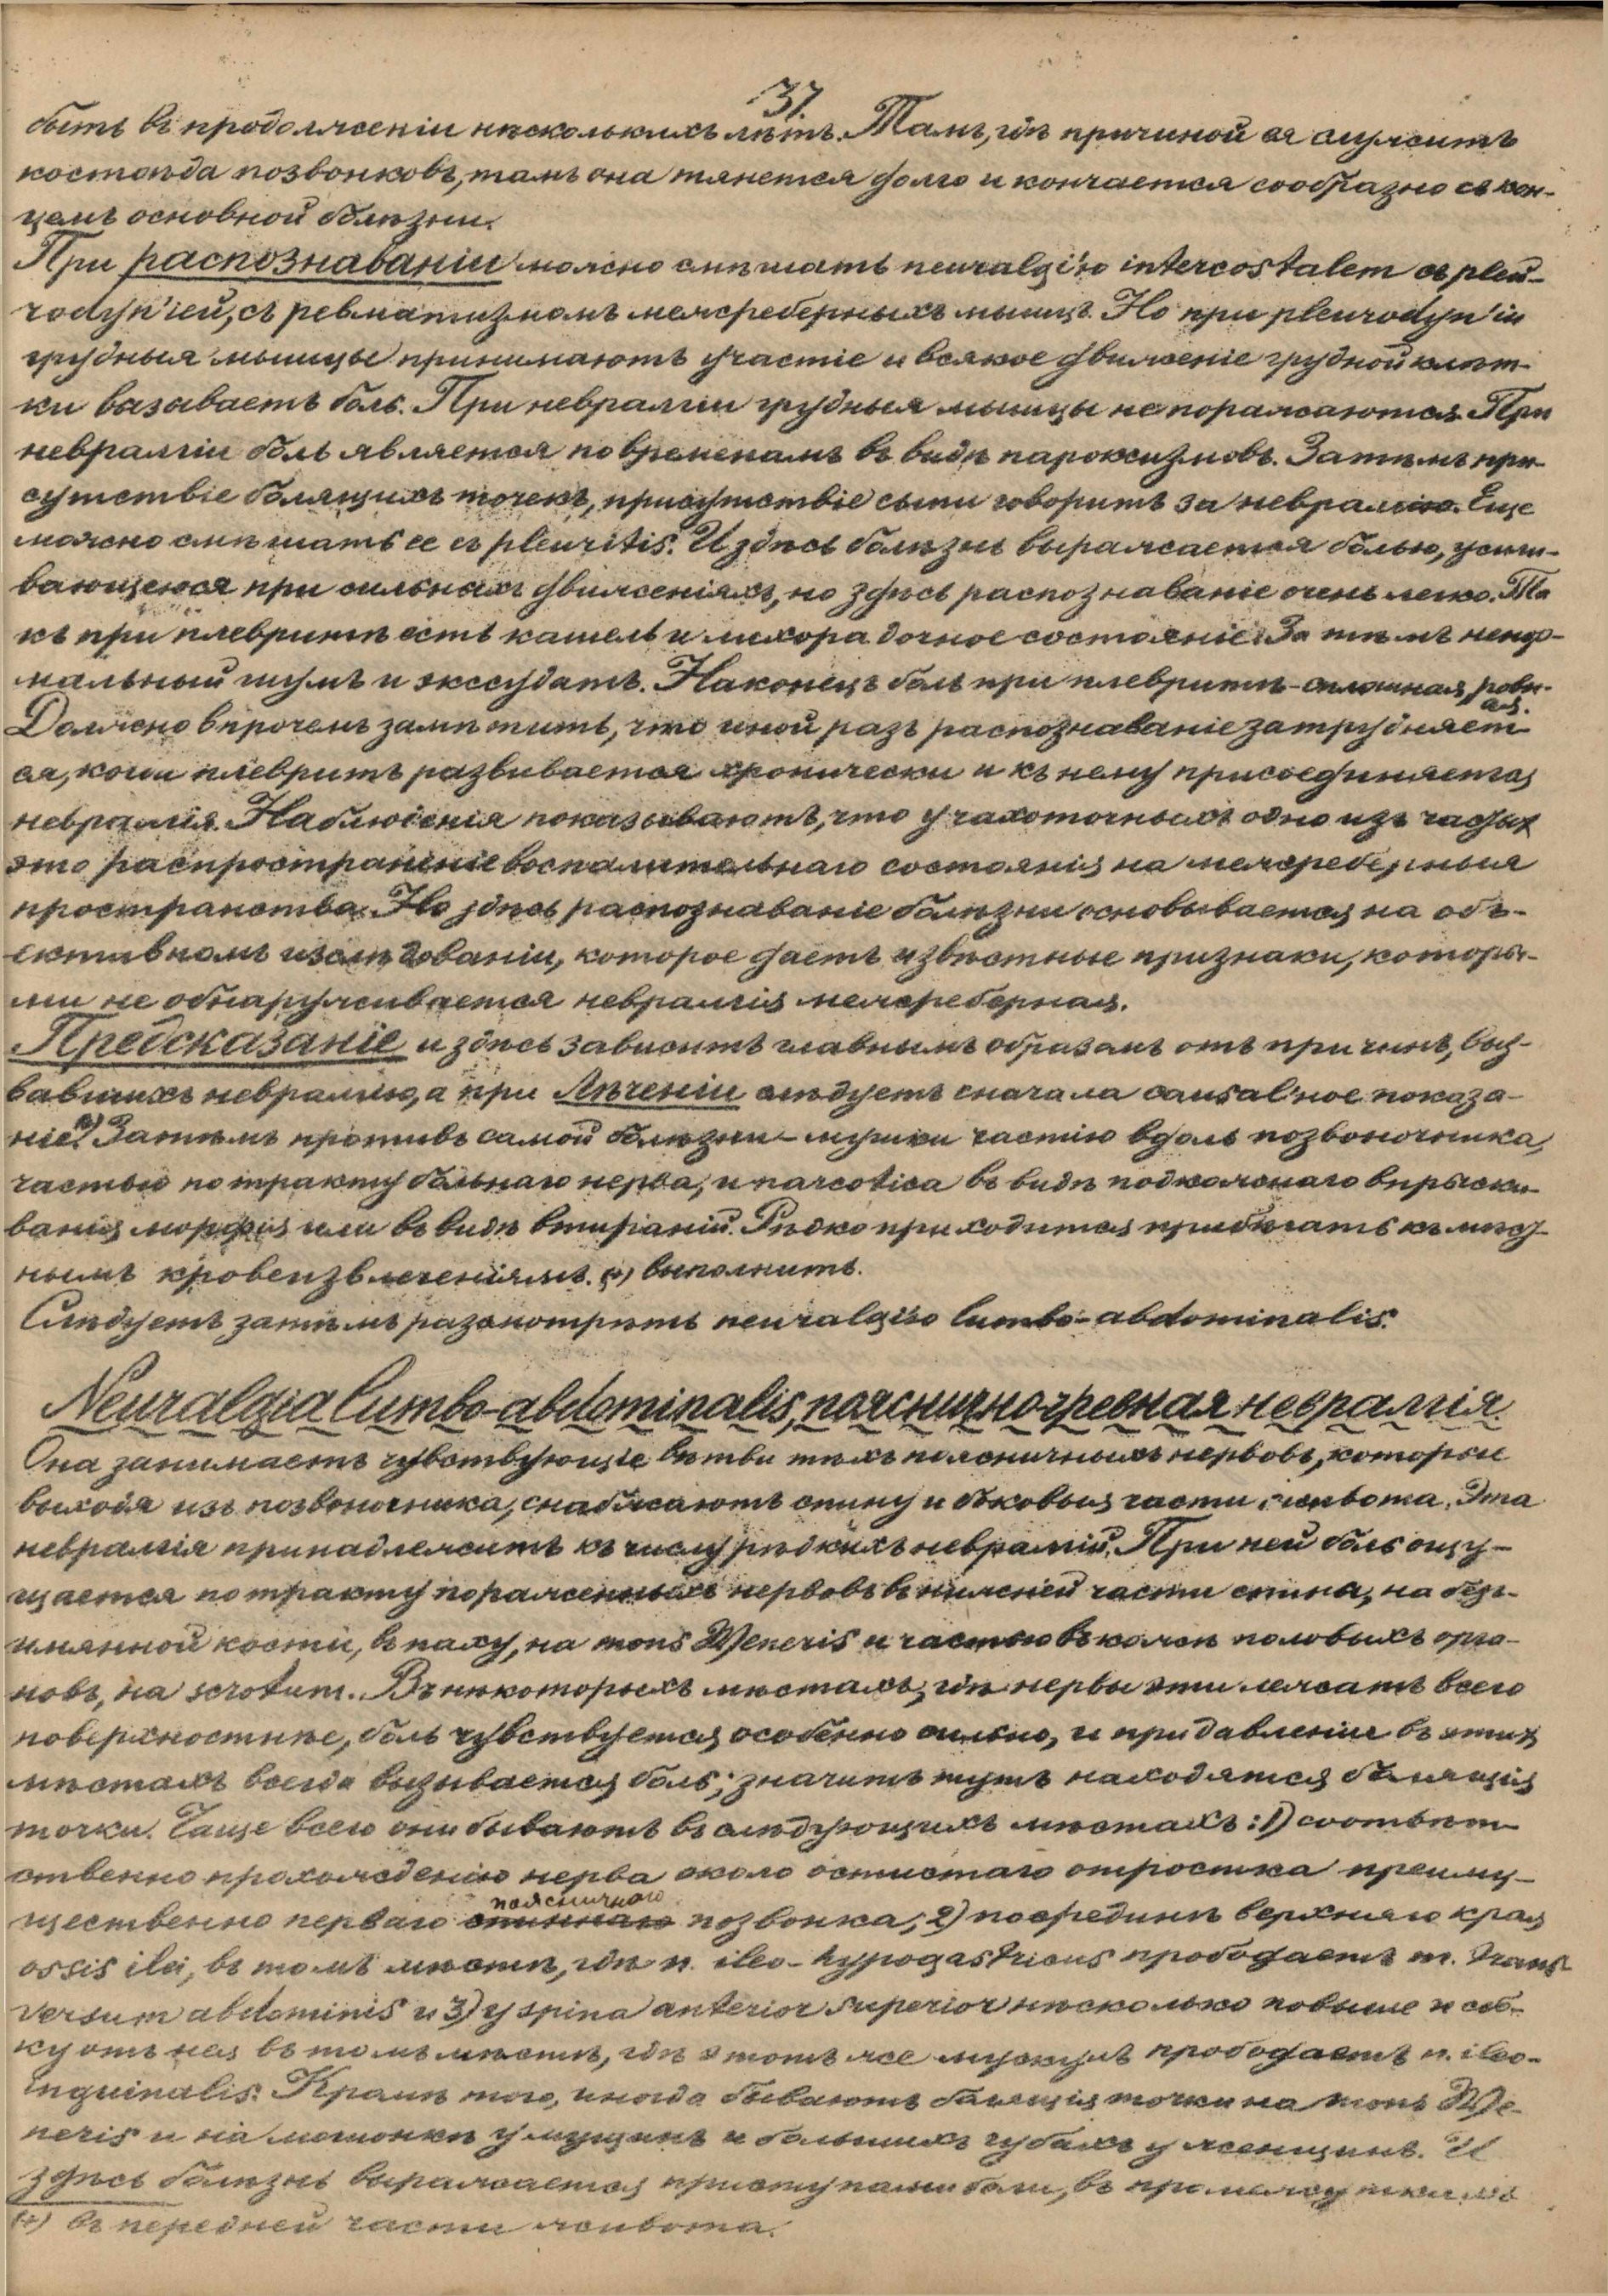 37.
быть въ продолженіи нѣсколькихъ лѣтъ. Тамъ, гдѣ причиной ея служитъ
костоѣда позвонковъ, тамъ она тянется долго и кончается сообразно съ кон-
цемъ основной болѣзни.
При распознаваніи можно смѣшать neuralgi'ю intercostalem съ pleu-
rodyn'іей, съ ревматизмомъ межреберныхъ мышцъ. Но при pleurodyn'іи
грудныя мышцы принимаютъ участіе и всякое движеніе грудной клѣт-
ки вазаваетъ боль. При невралгіи грудныя мышцы не поражаются. При
невралгіи боль является по временамъ въ видѣ пароксизмовъ. Затѣмъ при-
сутствіе болящихъ точекъ, присутствіе сыпи говоритъ за невралгію. Еще
можно смѣшать ее съ pleuritis. И здѣсь болѣзнь выражается болью, усили-
вающеюся при сильныхъ движеніяхъ, но здѣсь распознаваніе очень легко. Та
къ при плевритѣ есть кашель и лихорадочное состояніе. За тѣмъ ненор-
мальный шумъ и экссудатъ. Наконецъ боль при плевритѣ - сплошная, ровн-
ая.
Должно впрочемъ замѣтить, что иной разъ распознаваніе затрудняет-
ся, коли плевритъ развивается хронически и къ нему присоединяется
невралгія. Наблюденія показываютъ, что у чахоточныхъ одно изъ частых
это распространеніе воспалительнаго состоянія на межреберныя
пространства. Но здѣсь распознаваніе болѣзни основывается на объ-
ективномъ изслѣдованіи, которое даетъ извѣстные признаки, которы-
ми не обнаруживается невралгія межреберная.
Предсказаніе и здѣсь зависитъ главнымъ образомъ отъ причинъ, выз-
вавшихъ невралгію, а при Лѣченіи слѣдуетъ сначала causal'ное показа-
ніе. Затѣмъ противъ самой болѣзни - мушки частію вдоль позвоночника,
частью по тракту больнаго нерва, и narcotica въ видѣ подкожнаго впрыски-
ванія морфія или въ видѣ втираній. Рѣдко приходится прибѣгать къ мѣст-
нымъ кровеизвлеченіямъ. (*) выполнить.
Слѣдуетъ затѣмъ разсмотрѣть neuralgi'ю lumbo-abdominalis.
Neuralgia lumbo-abdominalis, пояснично-чревная невралгія.
Она занимаетъ чувствующіе вѣтви тѣхъ поясничныхъ нервовъ, которые
выходя изъ позвоночника, снабжаютъ спину и боковыя части живота. Эта
невралгія принадлежитъ къ числу рѣдкихъ невралгій. При ней боль ощу-
щается по тракту пораженныхъ нервовъ въ нижней части спины, на безъ-
имянной кости, въ паху, на mons Weneris и частью въ кожѣ половыхъ орга-
новъ, на scrotum. Въ нѣкоторыхъ мѣстахъ, гдѣ нервы эти лежатъ всего
поверхностнѣе, боль чувствуется особенно сильно, и при давленіи въ этихъ
мѣстахъ всегда вызывается боль; значитъ тутъ находятся болящія
точки. Чаще всего они бываютъ въ слѣдующихъ мѣстахъ: 1) соотвѣт-
ственно прохожденію нерва около остистаго отростка преиму-
поясничнаго
щественно перваго спиннаго позвонка; 2) посрединѣ верхняго края
ossis ilei, въ томъ мѣстѣ, гдѣ n. ileo-hypogastricus прободаетъ m. trans-
versum abdominis и 3) у spina anterior superior нѣсколько повыше и сбо-
ку отъ нея въ томъ мѣстѣ, гдѣ этотъ же мускулъ прободаетъ n. ileo-
inguinalis. Кромѣ того, иногда бываютъ болящія точки на mons We-
neris и на мошонкѣ у мущинъ и большихъ губахъ у женщинъ. И
здѣсь болѣзнь выражается приступами боли, въ промежуткахъ
(+) въ передней части живота.